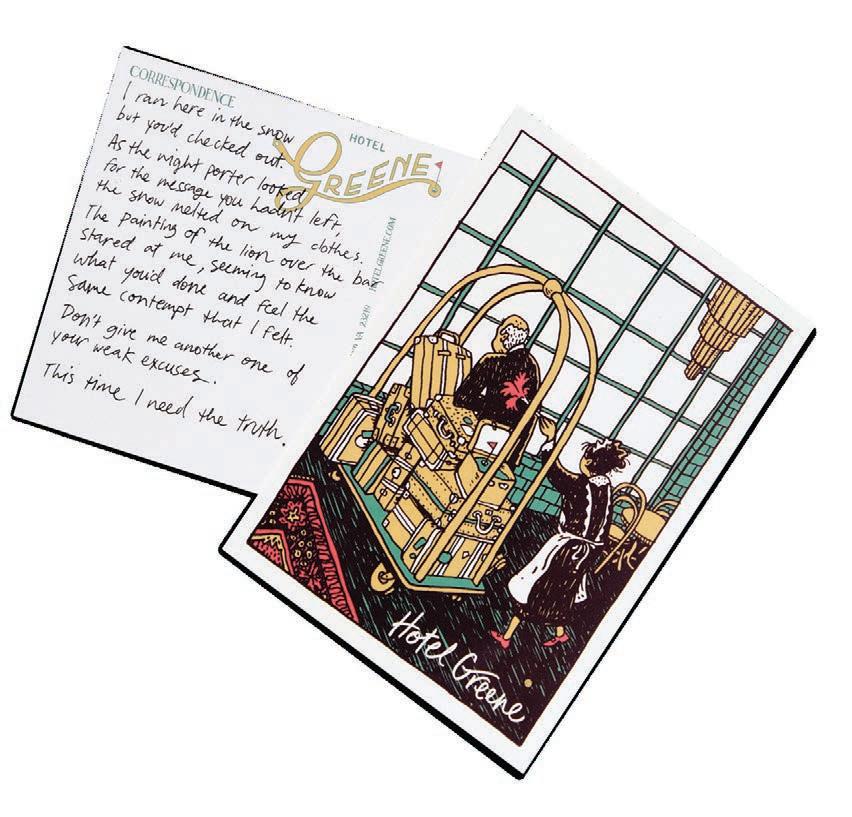 CORRESPONDENCE
I ran here in the snow
but you'd checked out.
As the night porter looked
for the message you hadn't left,
the snow melted on my clothes.
The painting of the lion over the bar
stared at me, seeming to know
what you'd done and feel the
same contempt that I felt.
Don't give me another one of
your weak excuses.
This time I need the truth.
HOTEL
GREENE
VA 23219 HOTELGREENE.COM
Hotel Greene